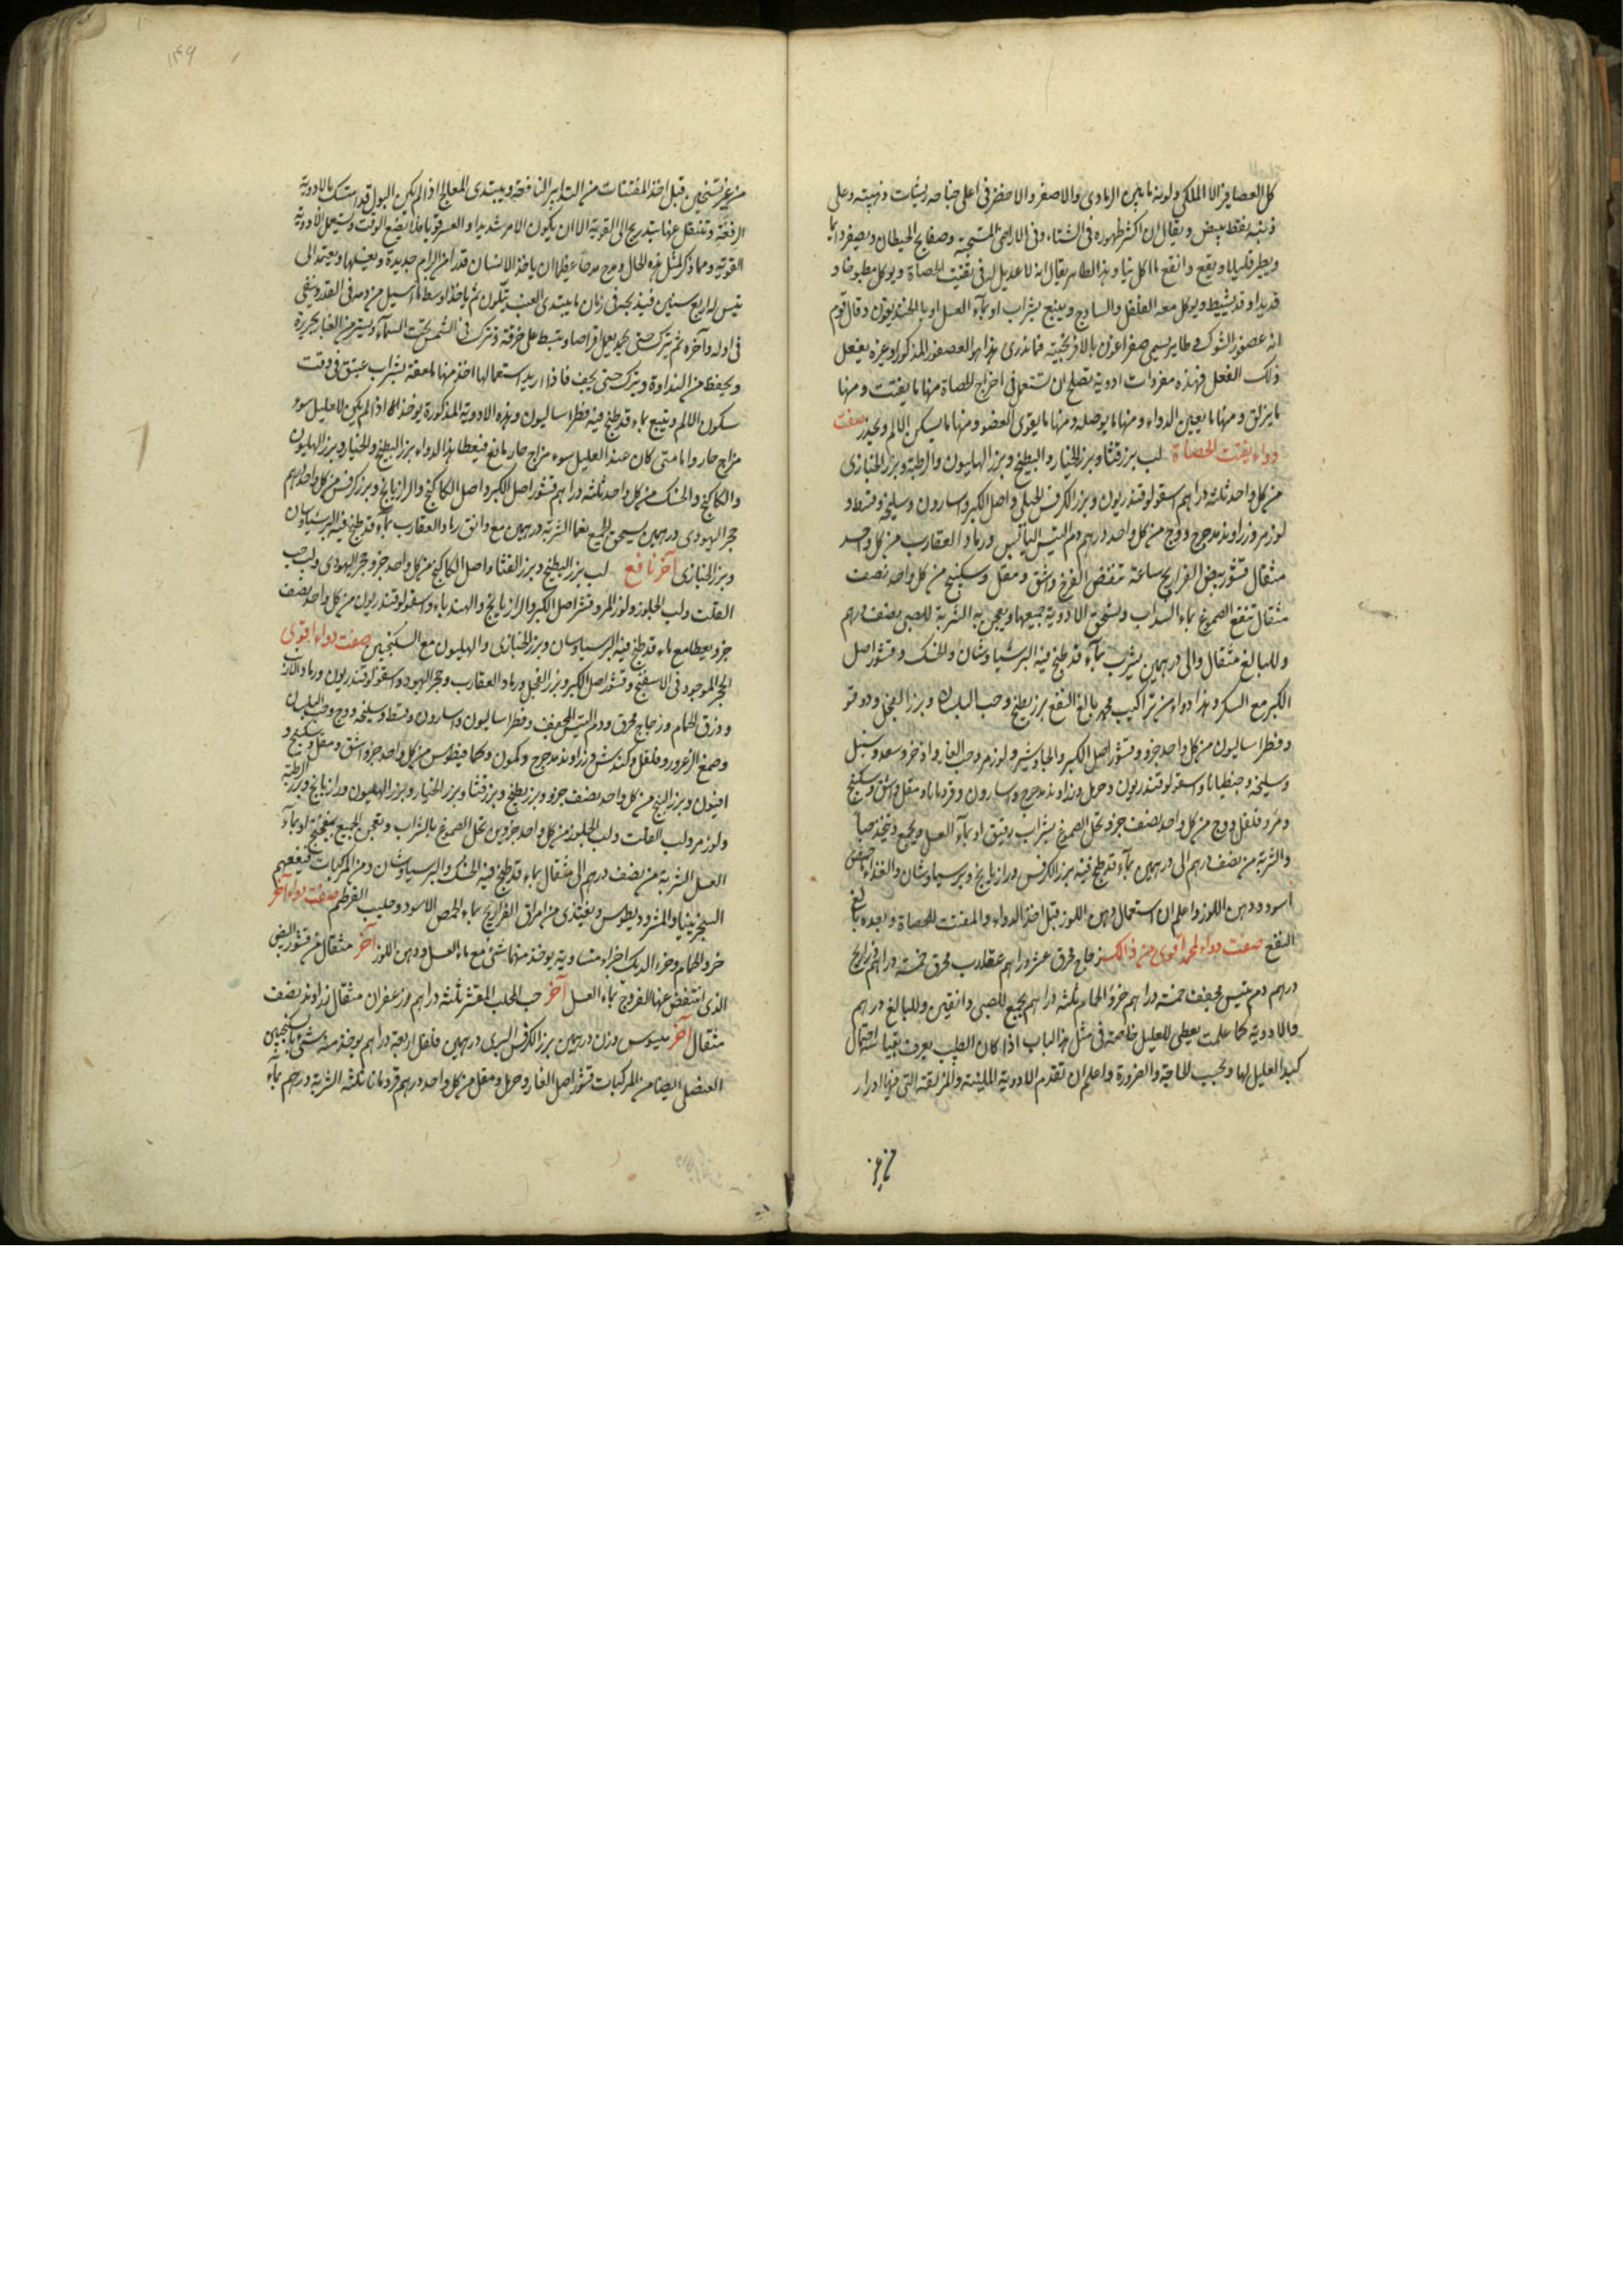 كل العصافير الا الملكي ولونه ما بين الرمادى والاصفر والاخضر فى اعلى جناحه ريشات ذهبيته وعلى
ذنبه نقط بيض ويقال ان اكثر ظهوره فى الشتاء وفى الاراضى المتسبخة وصفايح الحيطان ويصفر دايما
ويطير قليلا ويقع وانفع ما اكل نيا وهذا الطاير يقال انه لا عديل له فى تفتيت الحصاة ويوكل مطبوخا و
قديدا وقد يشيط ويوكل معه الفلفل والساذج ويتبع بشراب او بمآء العسل او بالخنديقون وقال قوم
انه عصفور الشوك طاير يسمى صفراغون بالافرنجية فما ندرى هذا هو العصفور المذكور او غيره يفعل
ذلك الفعل فهذه مفردات ادوية تصلح ان تستعمل فى اخراج الحصاة منها ما يفتت ومنها
ما يزلق ومنها ما يعين الدواء ومنها ما يوصله ومنها ما يقوى العضو ومنها ما يسكن الالم ويخدر صفت
دواء يفتت الحصاة لب بزر قثا وبزر الخيار والبطيخ وبزر الهليون والرطبة وبزر الخبازى
من كل واحد ثلثه دراهم اسقولوقندريون وبزر الكرفس الجبلى واصل الكبر واسارون وسليخه وقسط و
لوز مر وزراوند مدحرج ووج من كل واحد درهم دم التيس اليابس ورماد العقارب من كل واحد
مثقال قشور بيض الفراريج ساعة تنقض الفرخ واشق ومقل وسكبينج من كل واحد نصف
مثقال تنقع الصموغ بماء السداب وتسحق الادوية جميعها ويعجن به الشربة للصبى نصف درهم
وللبالغ مثقال والى درهمين يشرب بمآء قد طبخ فيه البرشياوشان والحسك وقشور اصل
الكبر مع السكر وهذا دواء من تراكيب محمد بالغ النفع بزر بطيخ وحب البلسان وبزر الفجل ودوقو
وفطراساليون من كل واحد جزو وقشور اصل الكبر والجاوشير ولوز مر وحب الغار واذخر وسعد وسنبل
وسليخه وجنطيانا واسقولوقندريون وحرمل وزراوند مدحرج واسارون وقردمانا ومقل واشق وسكبينج
ومر وفلفل ووج من كل واحد نصف جزو تحل الصموغ بشراب رقيق او بمآء العسل ويجمع ويتخذ حبا
والشربة من نصف درهم الى درهمين بمآء قد طبخ فيه بزر الكرفس ورازيانج وبرسياوشان والغذاء حمص
اسود ودهن اللوز واعلم ان استعمال دهن اللوز قبل اخذ الدواء والمفتت للحصاة وبعده بالغ
النفع صفت دواء لمحمد اقوى من ذالك زجاج محرق عشر دراهم عقارب محرق خمسة دراهم زرانيخ
درهم دم تيس مجفف خمسة دراهم خرؤ الحمام ثلثه دراهم يجمع للصبى دانقين وللبالغ درهم
والادوية كما علمت يعطى للعليل خاصة فى مثل هذا الباب اذا كان الطبيب يعرف بقياسه احتمال
كبد العليل لها وبحسب الحاجة والضرورة واعلم ان تقدم الادوية الملينة والمزلقة التى فيها ادرار
من غير
من غير تسخين قبل اخذ المفتتات من التدابير النافعة ويبتدى المعالج اذا لم يكن البول قد امتسك بالادوية
الرفقة وتنتقل عنها بتدريج الى القوية الا ان يكون الامر شديدا والعسر قويا فلا يضيع الوقت وتستعمل الادوية
القوية ومما ذكر لمثل هذه الحال ومدح مدحا عظيما ان ياخذ الانسان قدرا من البرام جديدة ويغسلها ويعمد الى
تيس له اربع سنين فيذبحه فى زمان ما يبتدى العنب يتلون ثم ياخذ اوسط ما يسيل من دمه فى القدر وينفى
فى اوله وآخره ثم يترك حتى يجمد يعمل اقراصا ويبسط على خرقة ويترك فى الشمس تحت السمآء ويستر من الغبار بحريرة
ويحفظ من النداوة ويترك حتى يجف فاذا اريد استعمالها اخذ منها ملعقة بشراب عتيق فى وقت
سكون الالم ويتبع بماء قد طبخ فيه فطراساليون وهذه الادوية المذكورة يوخذ اذا لم يكن للعليل سوء
مزاج حار واما متى كان عند العليل سوء مزاج حار مانع فيعطا هذا الدواء بزر البطيخ والخيار وبزر الهليون
والكاكنج والحسك من كل واحد ثلثه دراهم قشور اصل الكبر واصل الكاكنج والرازيانج وبزر كرفس من كل واحد درهم
حجر اليهودى درهمين يسحق الجميع نعما الشربة درهمين مع دانق رماد العقارب بمآء قد طبخ فيه البرشياوشان
وبزر الخبازى آخر نافع لب بزر البطيخ وبزر القثا واصل الكاكنج من كل واحد جزو حجر اليهودى ولب حب
القلت ولب الجلوز ولوز المر وقشر اصل الكبر والرازيانج والهندباء واسقولوقندريون من كل واحد نصف
جزو يعطا مع ماء قد طبخ فيه البرسياوسان وبزر الخبازى والهليون مع السكنجبين صفت دواء اقوى
الحجر الموجود فى الاسفنج وقشور اصل الكبر وبزر الفجل ورماد العقارب وحجر اليهود واسقولوقندريون ورماد الارنب
وذرق الحمام وزجاج محرق ودم التيس المجفف وفطراساليون واسارون وقسط وسليخه ووج وحب البلسان
وصمغ الزعرور وفلفل وكندس وزراوند مدحرج وكمون وكمافيطوس من كل واحد جزو اشق ومقل وسكبينج و
افيون وبزر البنج من كل واحد نصف جزو وبزر بطيخ وبزر قثا وبزر الخيار وبزر الهليون ورازيانج وبزر الرطبة
ولوز مر ولب القلت ولب الجلوز من كل واحد جزوين تحل الصموغ بالشراب ويعجن الجميع بميفختج او بمآء
العسل الشربة من نصف درهم الى مثقال بماء قد طبخ فيه الحسك والبرسياوشان ومن المركبات فينفعهم
السجزينيا والمثروديطوس ويغتذى من امراق الفراريج بماء الحمص الاسود وحليب القرطم صفت دواء آخر
خرؤ الحمام وخرء الديك اجزاء متساوية يوخذ منهما شئ مع ماء العسل ودهن اللوز آخر مثقال من قشور البيض
الذى انتقض عنها الفروج بماء العسل آخر حب المحلب المقشر ثلثه دراهم وزعفران مثقال زراوند نصف
مثقال آخر وزن درهمين بزر الكرفس البرى درهمين فلفل اربعة دراهم يوخذ منه شئ بالسكنجبين
العنصلى ايضا من المركبات قشور اصل الغار وحرمل ومقل من كل واحد درهم قردمانا ثلثه الشربة درهم بمآء